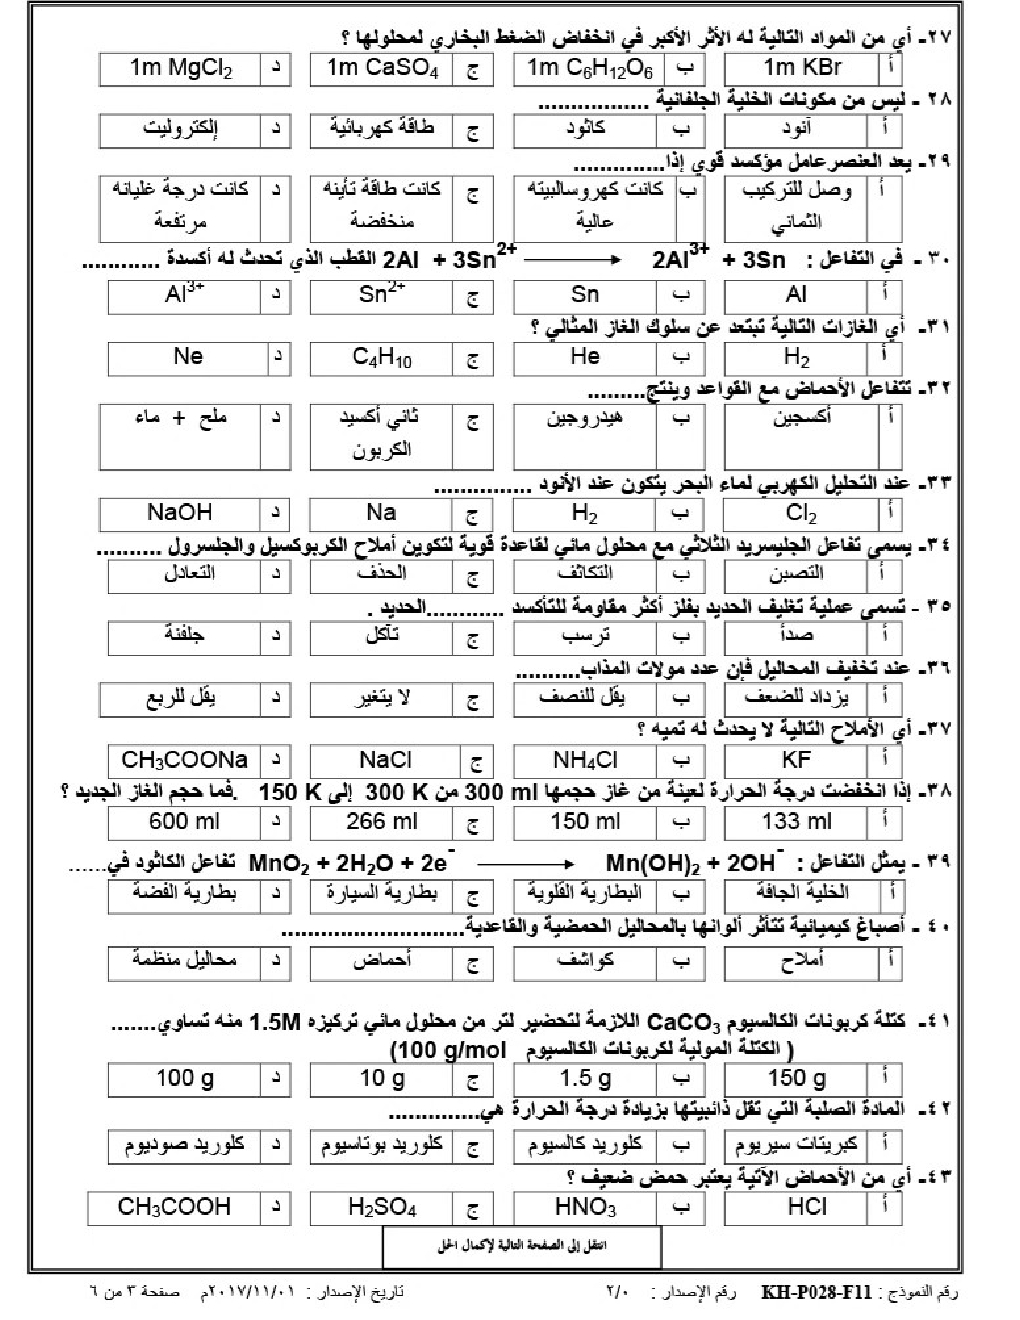 ٢٧- أي من المواد التالية له الأثر الأكبر في انخفاض الضغط البخاري لمحلولها ؟
أ 1m KBr ب 1m C₆H₁₂O₆ ج 1m CaSO₄ د 1m MgCl₂
٢٨ - ليس من مكونات الخلية الجلفانية .................
أ آنود ب كاثود ج طاقة كهربائية د إلكتروليت
٢٩- يعد العنصر عامل مؤكسد قوي إذا..............
أ وصل للتركيب الثماني ب كانت كهروسالبيته عالية ج كانت طاقة تأينه منخفضة د كانت درجة غليانه مرتفعة
٣٠ - في التفاعل : 2Al + 3Sn²⁺ ⟶ 2Al³⁺ + 3Sn القطب الذي تحدث له أكسدة ............
أ Al ب Sn ج Sn²⁺ د Al³⁺
٣١- أي الغازات التالية تبتعد عن سلوك الغاز المثالي ؟
أ H₂ ب He ج C₄H₁₀ د Ne
٣٢- تتفاعل الأحماض مع القواعد وينتج.........
أ أكسجين ب هيدروجين ج ثاني أكسيد الكربون د ملح + ماء
٣٣- عند التحليل الكهربي لماء البحر يتكون عند الأنود ...............
أ Cl₂ ب H₂ ج Na د NaOH
٣٤- يسمى تفاعل الجليسريد الثلاثي مع محلول مائي لقاعدة قوية لتكوين أملاح الكربوكسيل والجلسرول ..........
أ التصبن ب التكاثف ج الحذف د التعادل
٣٥ - تسمى عملية تغليف الحديد بفلز أكثر مقاومة للتأكسد ............الحديد .
أ صدأ ب ترسب ج تآكل د جلفنة
٣٦- عند تخفيف المحاليل فإن عدد مولات المذاب..........
أ يزداد للضعف ب يقل للنصف ج لا يتغير د يقل للربع
٣٧- أي الأملاح التالية لا يحدث له تميه ؟
أ KF ب NH₄Cl ج NaCl د CH₃COONa
٣٨- إذا انخفضت درجة الحرارة لعينة من غاز حجمها 300 ml من 300 K إلى 150 K .فما حجم الغاز الجديد ؟
أ 133 ml ب 150 ml ج 266 ml د 600 ml
٣٩ - يمثل التفاعل : MnO₂ + 2H₂O + 2e⁻ ⟶ Mn(OH)₂ + 2OH⁻ تفاعل الكاثود في......
أ الخلية الجافة ب البطارية القلوية ج بطارية السيارة د بطارية الفضة
٤٠ - أصباغ كيميائية تتأثر ألوانها بالمحاليل الحمضية والقاعدية............................
أ أملاح ب كواشف ج أحماض د محاليل منظمة
٤١- كتلة كربونات الكالسيوم CaCO₃ اللازمة لتحضير لتر من محلول مائي تركيزه 1.5M منه تساوي.......
( الكتلة المولية لكربونات الكالسيوم 100 g/mol)
أ 150 g ب 1.5 g ج 10 g د 100 g
٤٢- المادة الصلبة التي تقل ذائبيتها بزيادة درجة الحرارة هي..............
أ كبريتات سيريوم ب كلوريد كالسيوم ج كلوريد بوتاسيوم د كلوريد صوديوم
٤٣- أي من الأحماض الآتية يعتبر حمض ضعيف ؟
أ HCl ب HNO₃ ج H₂SO₄ د CH₃COOH
انتقل إلى الصفحة التالية لإكمال الحل
رقم النموذج : KH-P028-F11 رقم الإصدار : ٢/٠ تاريخ الإصدار : ٢٠١٧/١١/٠١م صفحة ٣ من ٦